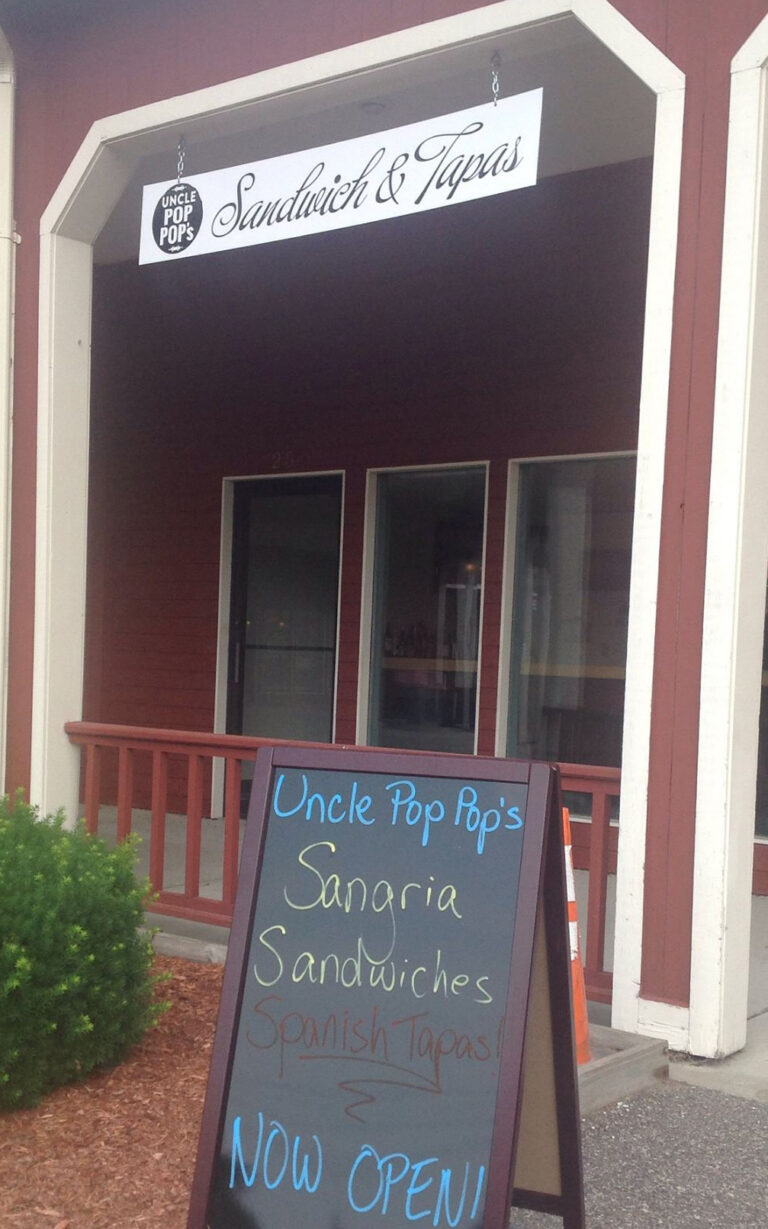 UNCLE
POP
POP's
Sandwich & Tapas
Uncle Pop Pop's
Sangria
Sandwiches
Spanish Tapas!
NOW OPEN!